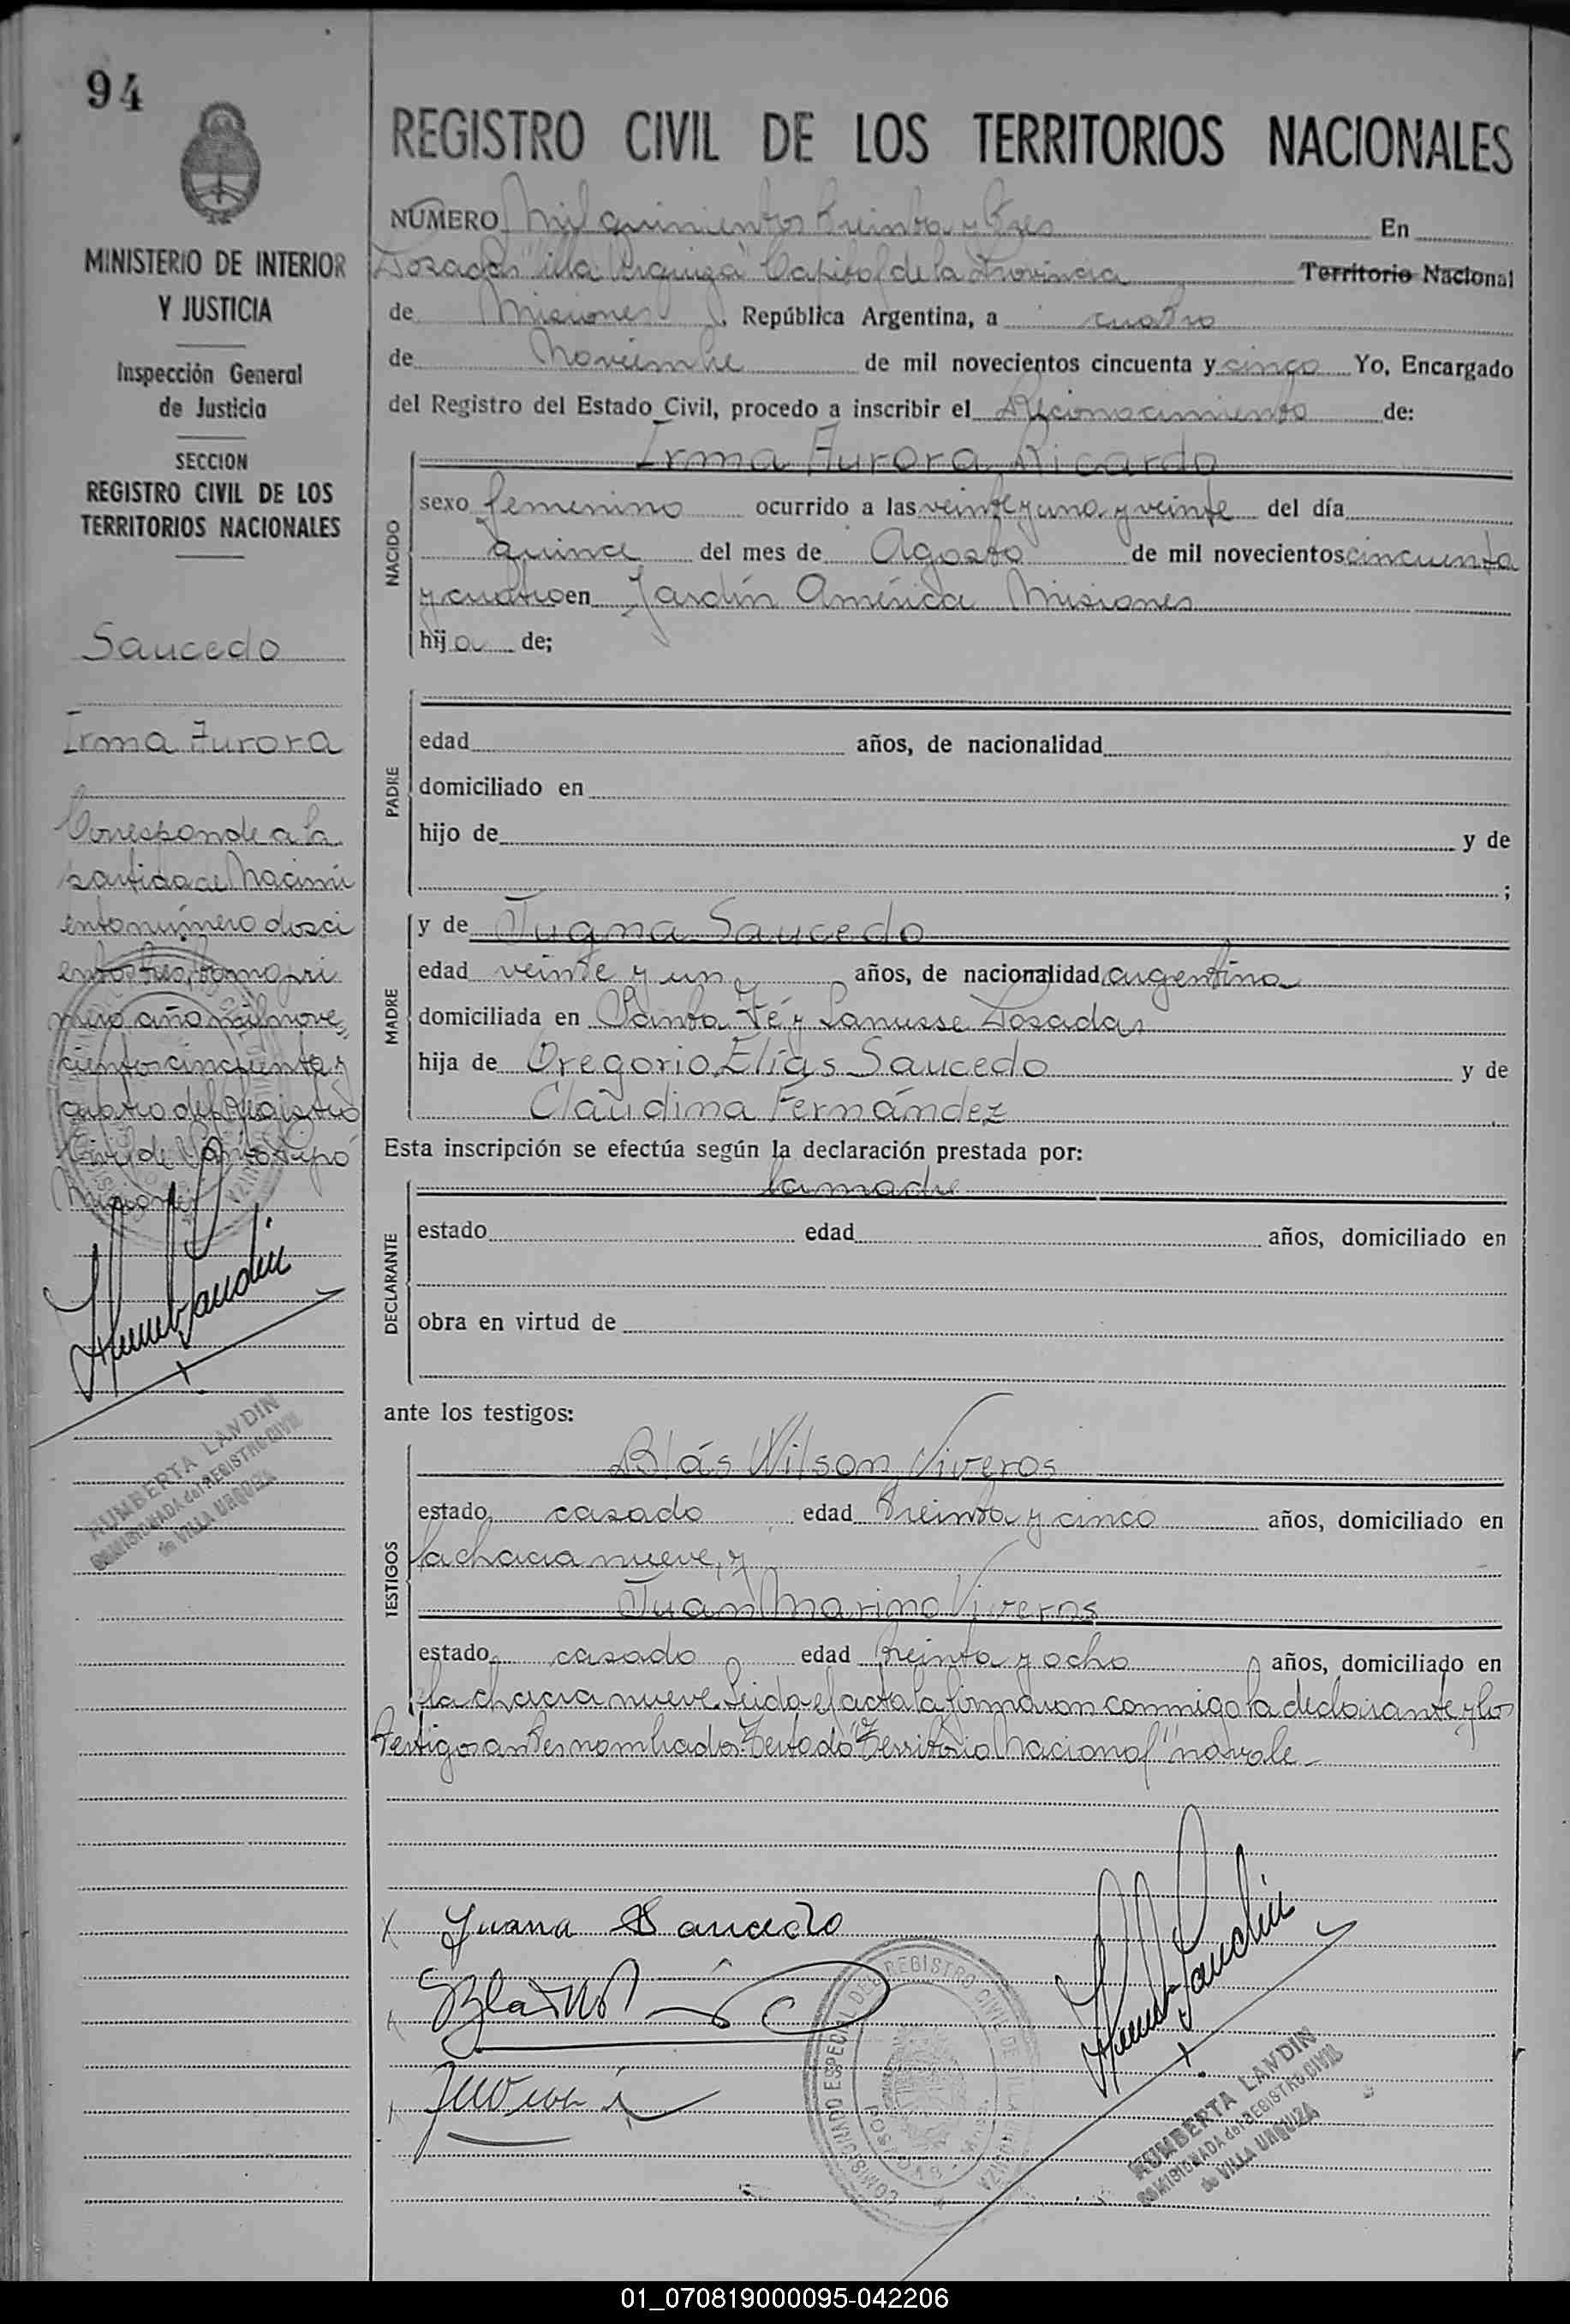 94
MINISTERIO DE INTERIOR
Y JUSTICIA
Inspección General
de Justicia
SECCION
REGISTRO CIVIL DE LOS
TERRITORIOS NACIONALES
Saucedo
Irma Aurora
Corresponde a la
partida de Nacimi
ento número dosci
entos tres, tomo pri
mero año mil nove,
cientos cincuenta y
cuatro del Registro
Civil de Santo Pipó
Misiones
HUMBERTA LANDIN
COMISIONADA del REGISTRO CIVIL
de VILLA URQUIZA
REGISTRO CIVIL DE LOS TERRITORIOS NACIONALES
NUMERO Mil quinientos treinta y tres En
Posadas "Villa Urquiza" Capital de la Provincia Territorio Nacional
de Misiones, República Argentina, a cuatro
de Noviembre de mil novecientos cincuenta y cinco Yo, Encargado
del Registro del Estado Civil, procedo a inscribir el Reconocimiento de:
Irma Aurora Ricardo
NACIDO
sexo femenino ocurrido a las veinte y una y veinte del día
quince del mes de Agosto de mil novecientos cincuenta
y cuatro en Jardín América Misiones
hija de;
PADRE
edad años, de nacionalidad
domiciliado en
hijo de y de
;
MADRE
y de Juana Saucedo
edad veinte y un años, de nacionalidad argentina
domiciliada en Santa Fé y Lanusse Posadas
hija de Gregorio Elías Saucedo y de
Claudina Fernández
Esta inscripción se efectúa según la declaración prestada por:
la madre
DECLARANTE
estado edad años, domiciliado en
obra en virtud de
ante los testigos:
TESTIGOS
Blás Wilson Viveros
estado casado edad treinta y cinco años, domiciliado en
la chacra nueve, y
Juan Marino Viveros
estado casado edad treinta y ocho años, domiciliado en
la chacra nueve. Leida el acta la firmaron conmigo la declarante y los
testigos antes nombrados. Testado "Territorio Nacional" no vale
x Juana Saucedo
COMISIONADO ESPECIAL DEL REGISTRO CIVIL DE VILLA URQUIZA
POSADAS
HUMBERTA LANDIN
COMISIONADA del REGISTRO CIVIL
de VILLA URQUIZA
01_070819000095-042206